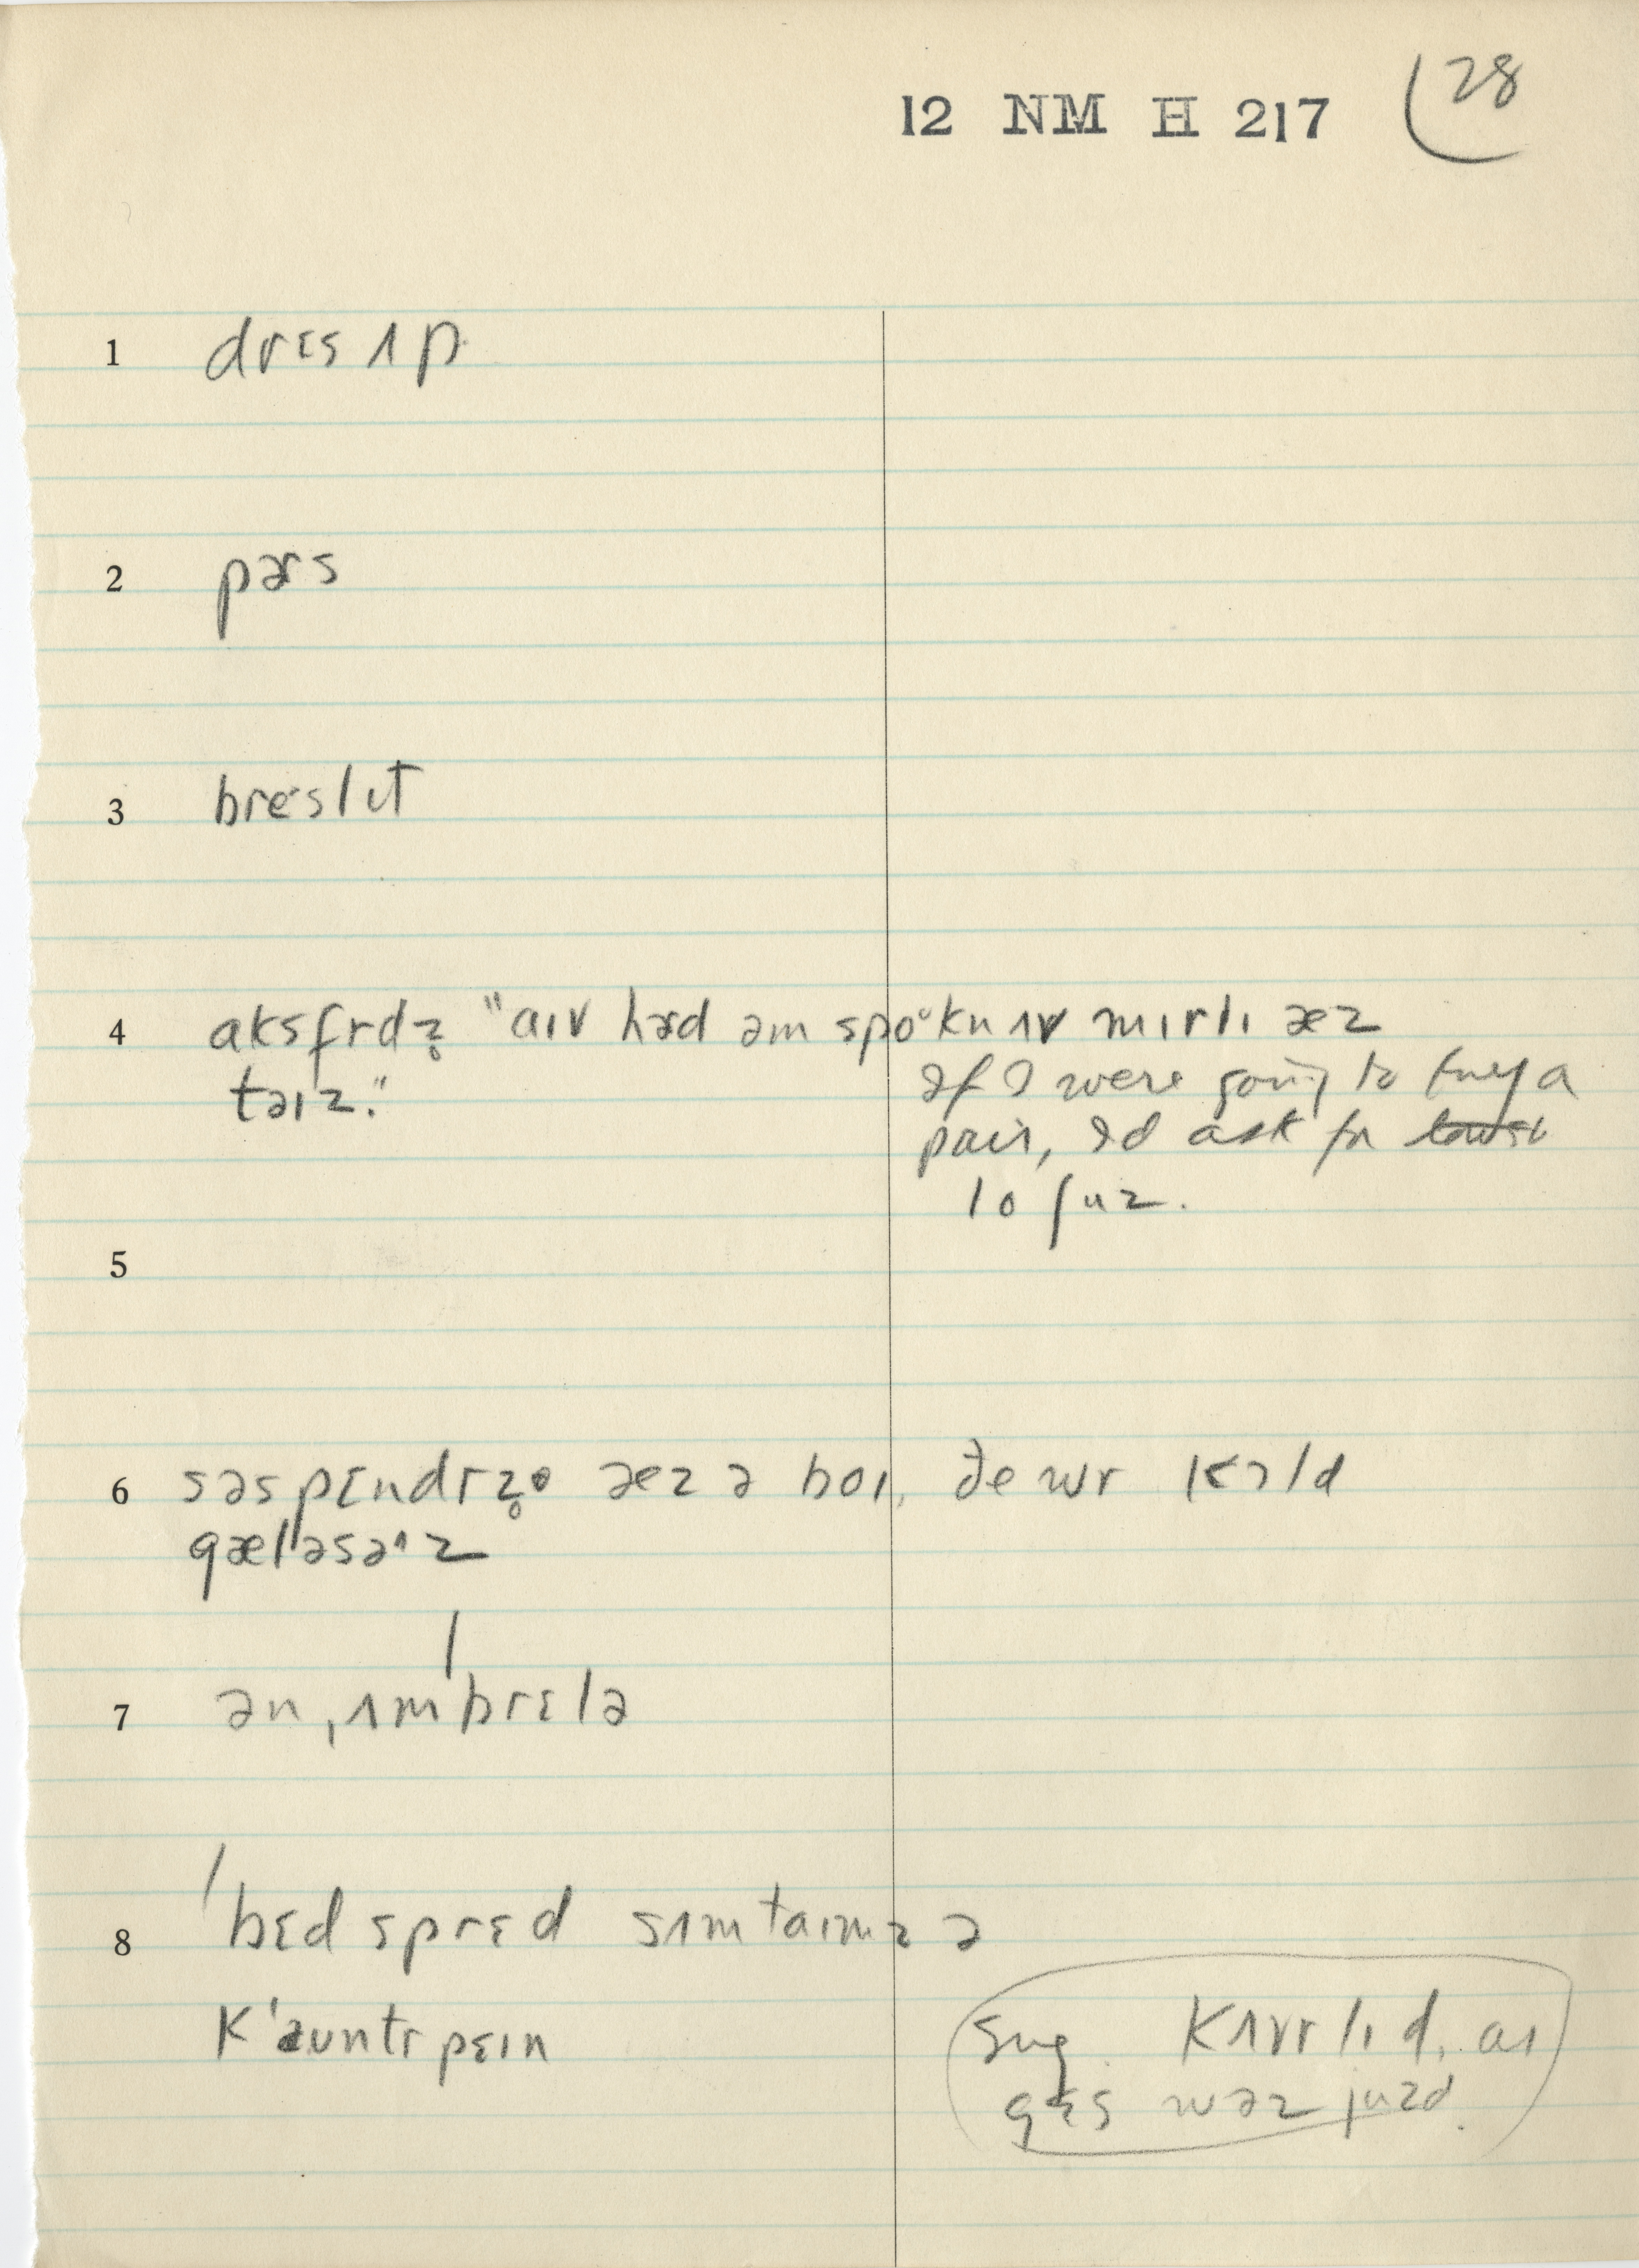 12 NM H 217 28
1 drɛs ʌp
2 pərs
3 breslɪt
4 aksfrdz̥ "aɪv hərd əm spoᵘkn ʌv mɪrlɪ æz
taɪz."
If I were going to buy a
pair, I'd ask for
lo ʃuz.
5
6 səspɛndrz̥ æz ə boɪ, ðe wr kɔld
gæləsəˈz
7 ən ˌʌmˈbrɛlə
8 ˈbɛdsprɛd sʌmtaɪmz ə
kˈauntrpɛɪn
sug. kʌvrlɪd, aɪ
gɛs wəz juzd.